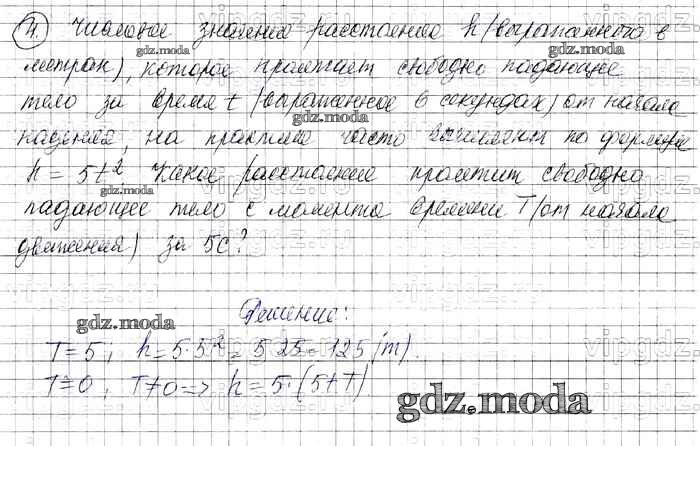 4. Числовое значение расстояние h (выраженного в
метрах), которое пролетает свободно падающее
тело за время t (выраженное в секундах) от начала
падения, на практике часто вычисляем по формуле
h = 5t² Какое расстояние пролетит свободно
падающее тело с момента времени T (от начала
движения) за 5с?
Решение:
T=5; h=5·5²=5·25=125 (m).
T=0; T≠0=> h=5·(5+T)
gdz.moda
gdz.moda
gdz.moda
gdz.moda
gdz.moda
gdz.moda